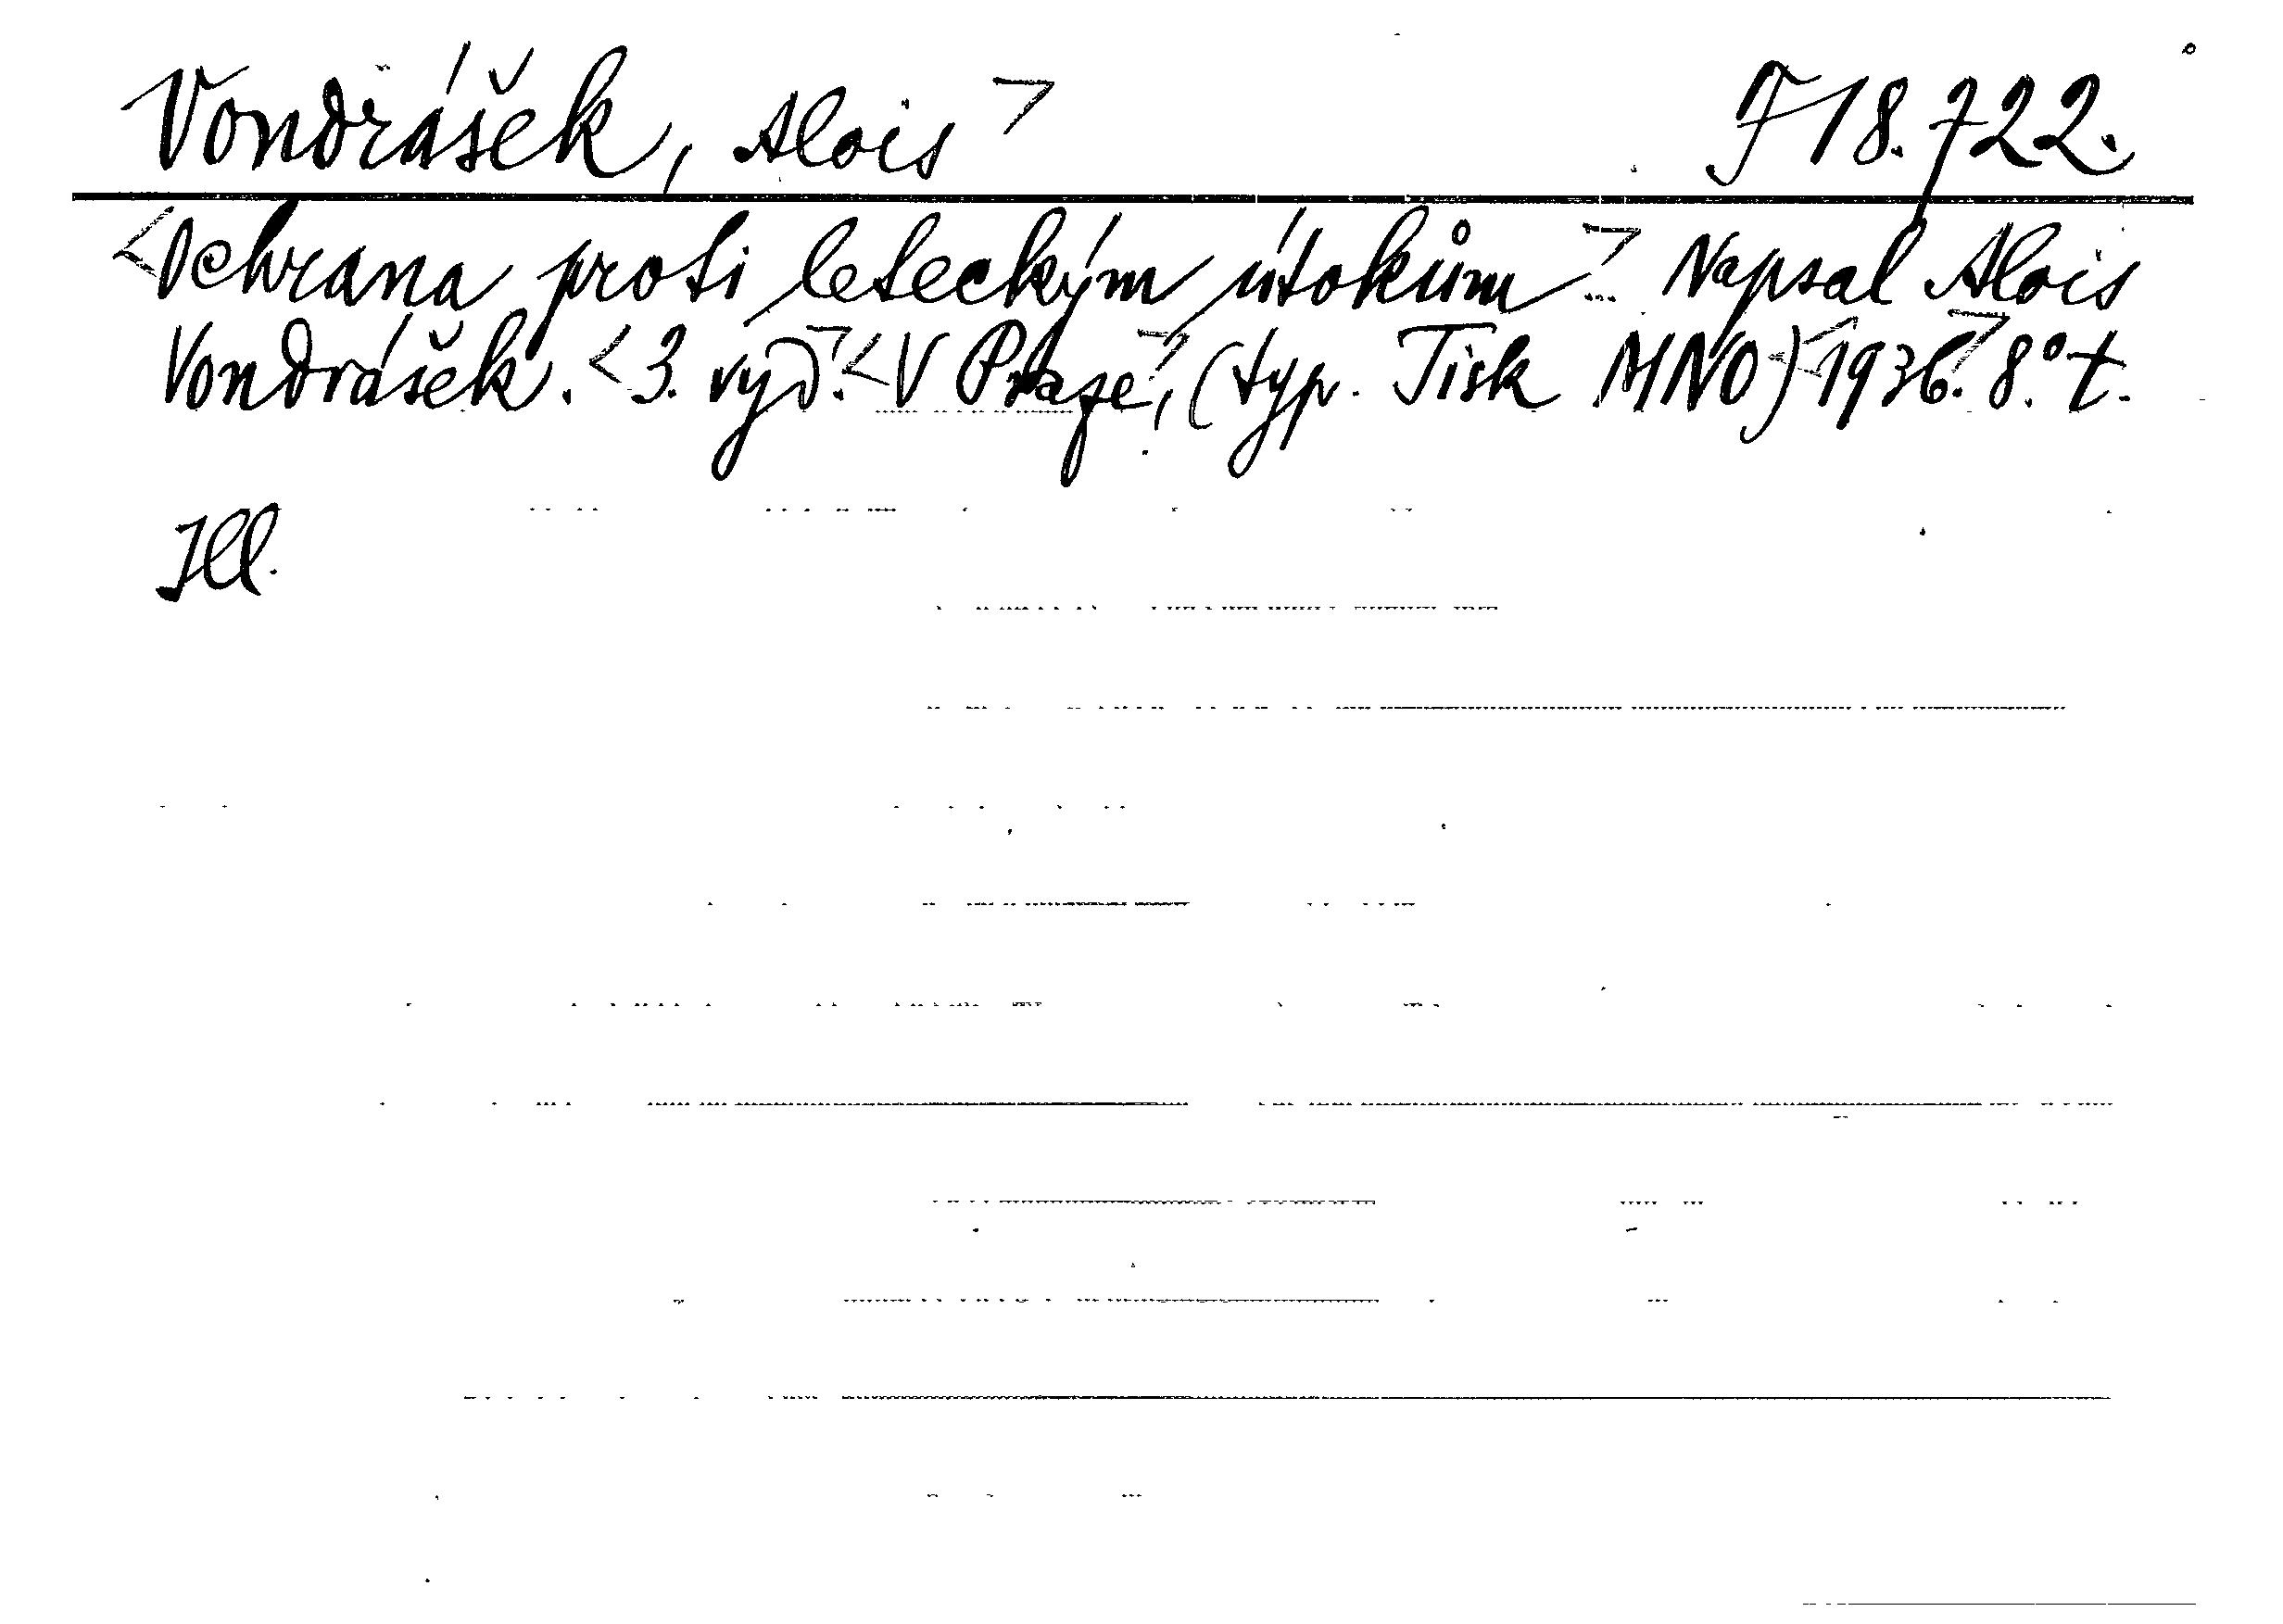 Vondrášek, Alois> F 18.722.
<Ochrana proti leteckým útokům.> Napsal Alois
Vondrášek. <3. vyd.> <V Praze>, (typ. Tisk MNO) <1936.> 8.° t.
Ill.